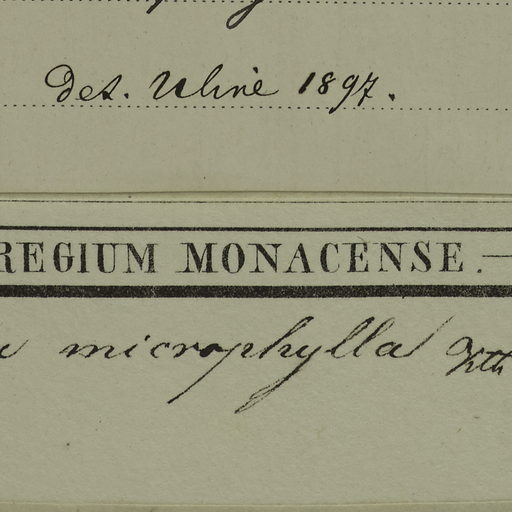 det. Uline 1897.
REGIUM MONACENSE.
microphylla